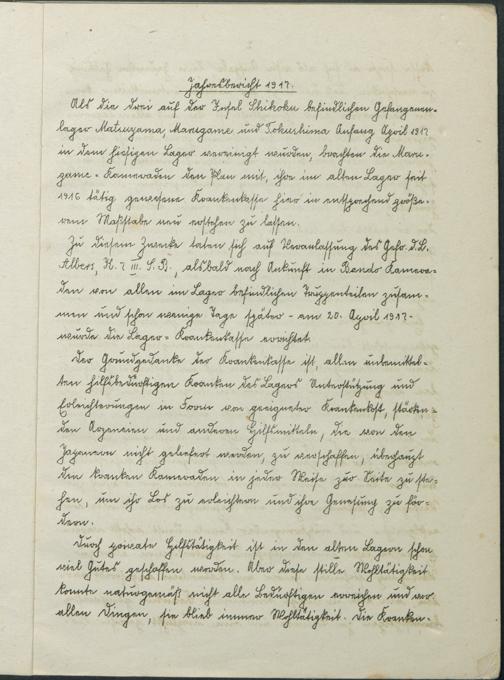 Jahresbericht 1917.
Als die drei auf der Insel Shikoku befindlichen Gefangenen-
lager Matsuyama, Marugame und Tokushima Anfang April 1917
in dem hiesigen Lager vereinigt wurden, brachten die Maru-
game-Kameraden den Plan mit, ihre im alten Lager seit
1916 tätig gewesene Krankenkasse hier in entsprechend größe-
rem Maßstabe neu erstehen zu lassen.
Zu diesem Zwecke taten sich auf Veranlassung des Gefr. d.L.
Albers, K. 7 III. S.B., alsbald nach Ankunft in Bando Kamera-
den von allen im Lager befindlichen Truppenteilen zusam-
men und schon wenige Tage später - am 20. April 1917-
wurde die Lager-Krankenkasse errichtet.
Der Grundgedanke der Krankenkasse ist, allen unbemittel-
ten hilfsbedürftigen Kranken des Lagers Unterstützung und
Erleichterungen in Form von geeigneter Krankenkost, stärken-
den Arzneien und anderen Hilfsmitteln, die von den
Japanern nicht geliefert werden, zu verschaffen, überhaupt
den kranken Kameraden in jeder Weise zur Seite zu ste-
hen, um ihr Los zu erleichtern und ihre Genesung zu för-
dern.
Durch private Hilfstätigkeit ist in den alten Lagern schon
viel Gutes geschaffen worden. Aber diese stille Wohltätigkeit
konnte naturgemäß nicht alle Bedürftigen erreichen und vor
allen Dingen, sie blieb immer Wohltätigkeit. Die Kranken-